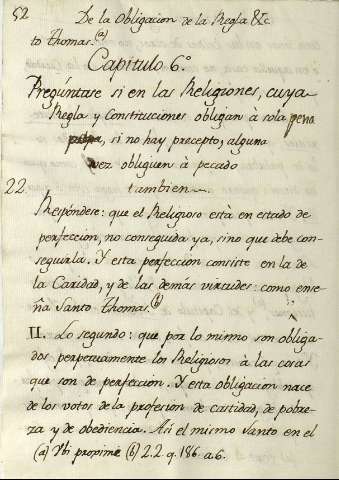 52 De la Obligacion de la Regla &c
to Thomas. (a)
Capitulo 6º
Pregúntase si en las Religiones, cuya
Regla y Constituciones obligan à sola pena
si no hay precepto, alguna
vez obliguen à pecado
22. tambien
Respóndese: que el Religioso està en estado de
perfeccion, no conseguida ya, sino que debe con-
seguirla. Y esta perfeccion consiste en la de
la Caridad, y de las demàs virtudes: como ense-
ña Santo Thomas. (b)
II. Lo segundo: que por lo mismo son obliga-
dos perpetuamente los Religiosos à las cosas
que son de perfeccion. Y esta obligacion nace
de los votos de la profesion de castidad, de pobre-
za y de obediencia. Asi el mismo Santo en el
(a) Ybi proxime (b) 2.2. q. 186. a. 6.